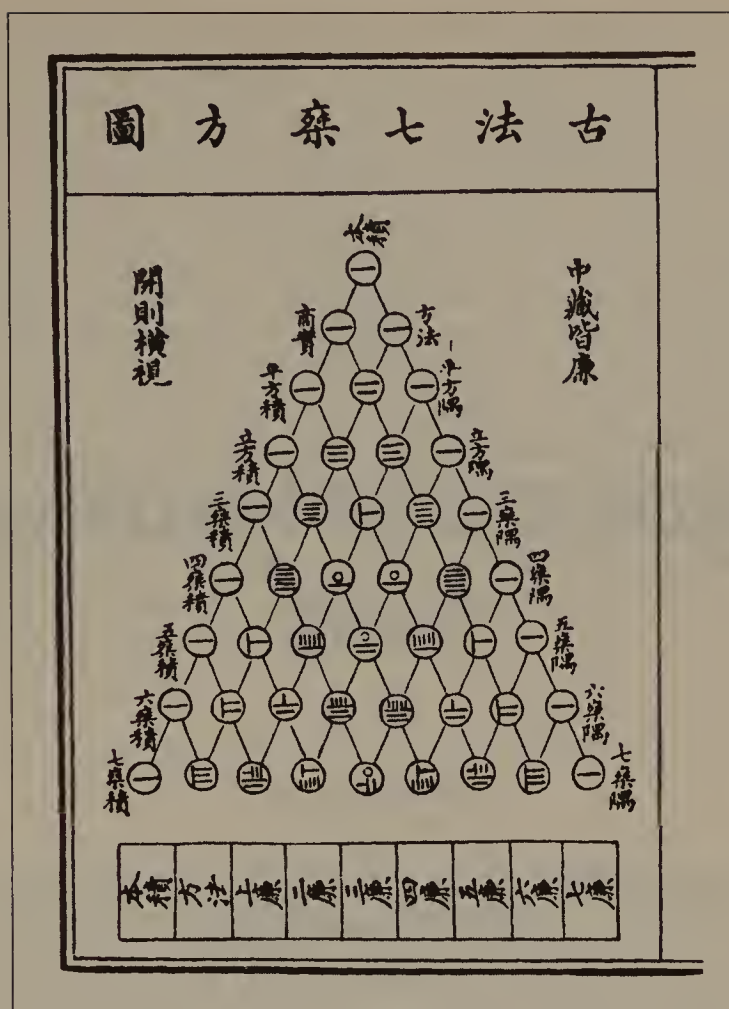 古法七乗方圖
中藏皆廉
開則横視
本積
商實
方法
平方積
平方隅
立方積
立方隅
三乗積
三乗隅
四乗積
四乗隅
五乗積
五乗隅
六乗積
六乗隅
七乗積
七乗隅
本積 方法 上廉 二廉 三廉 四廉 五廉 六廉 七廉